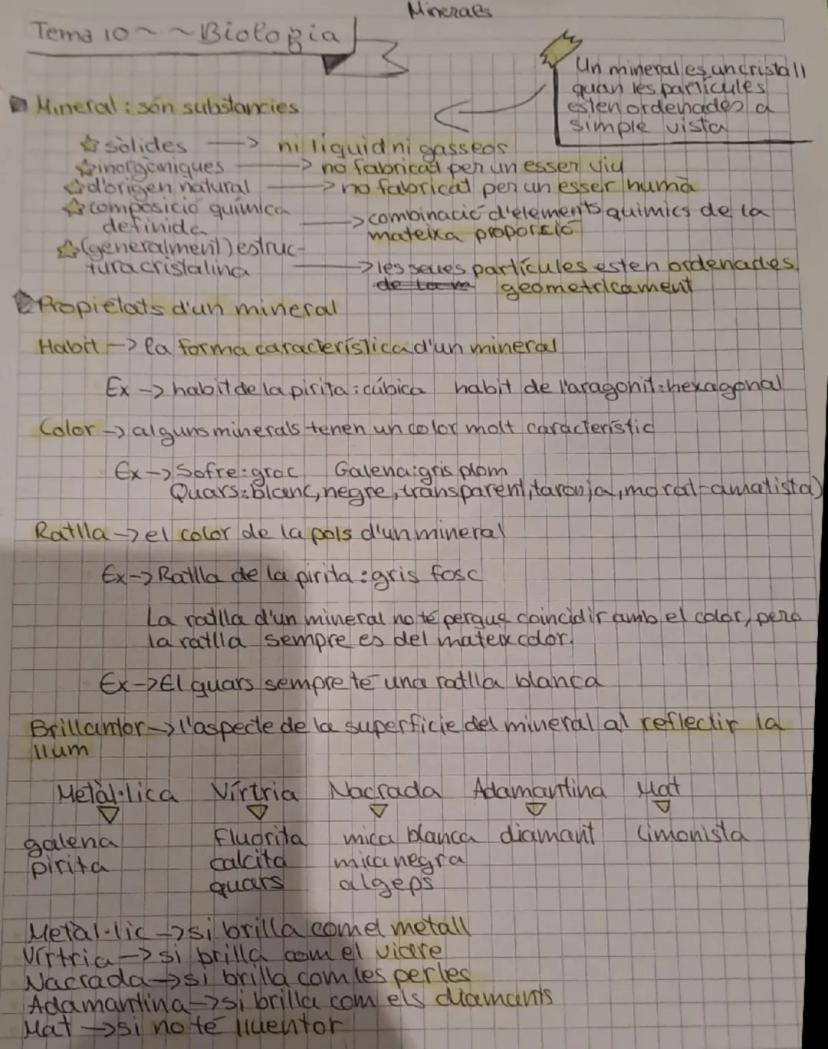 Minerals
Tema 10 ~ ~ Biologia
Un mineral es un cristall
quan les particules
esten ordenades a
simple vista
Mineral: són substancies
sòlides → ni líquid ni gasseos
inorgàniques → no fabricat per un esser viu
d'origen natural → no fabricat per un esser humà
composició química
definida → combinació d'elements quimics de la
mateixa proporció
(generalment) estruc-
tura cristalina → les seues partícules esten ordenades
geometricament
Propietats d'un mineral
Habit → la forma característica d'un mineral
Ex → habit de la pirita: cúbica habit de l'aragonit: hexagonal
Color → alguns minerals tenen un color molt característic
Ex → Sofre: groc Galena: gris plom
Quars: blanc, negre, transparent, taronja, morat-amatista)
Ratlla → el color de la pols d'un mineral
Ex → Ratlla de la pirita: gris fosc
La ratlla d'un mineral no té perque coincidir amb el color, pero
la ratlla sempre es del mateix color.
Ex → El quars sempre te una ratlla blanca
Brillantor → l'aspecte de la superficie del mineral al reflectir la
llum
Metàl·lica Vírtria Nacrada Adamantina Mat
galena fluorita mica blanca diamant limonista
pirita calcita mica negra
quars algeps
Metàl·lic → si brilla com el metall
Virtria → si brilla com el vidre
Nacrada → si brilla com les perles
Adamantina → si brilla com els diamants
Mat → si no té lluentor